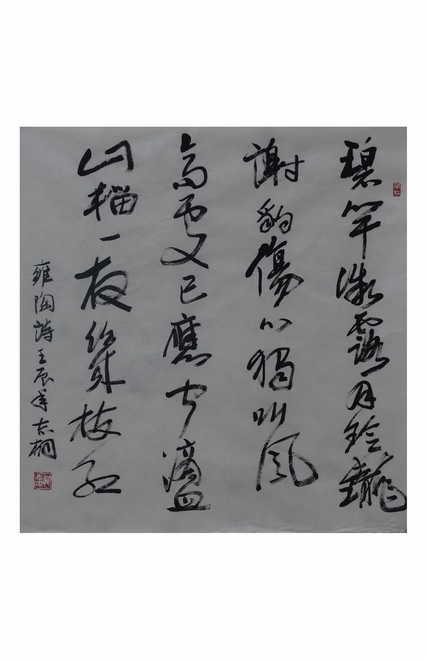 碧竿微露月玲瓏
謝豹傷心獨叫風
高處已應聞滴血
山榴一夜幾枝紅
雍陶詩壬辰年志桐